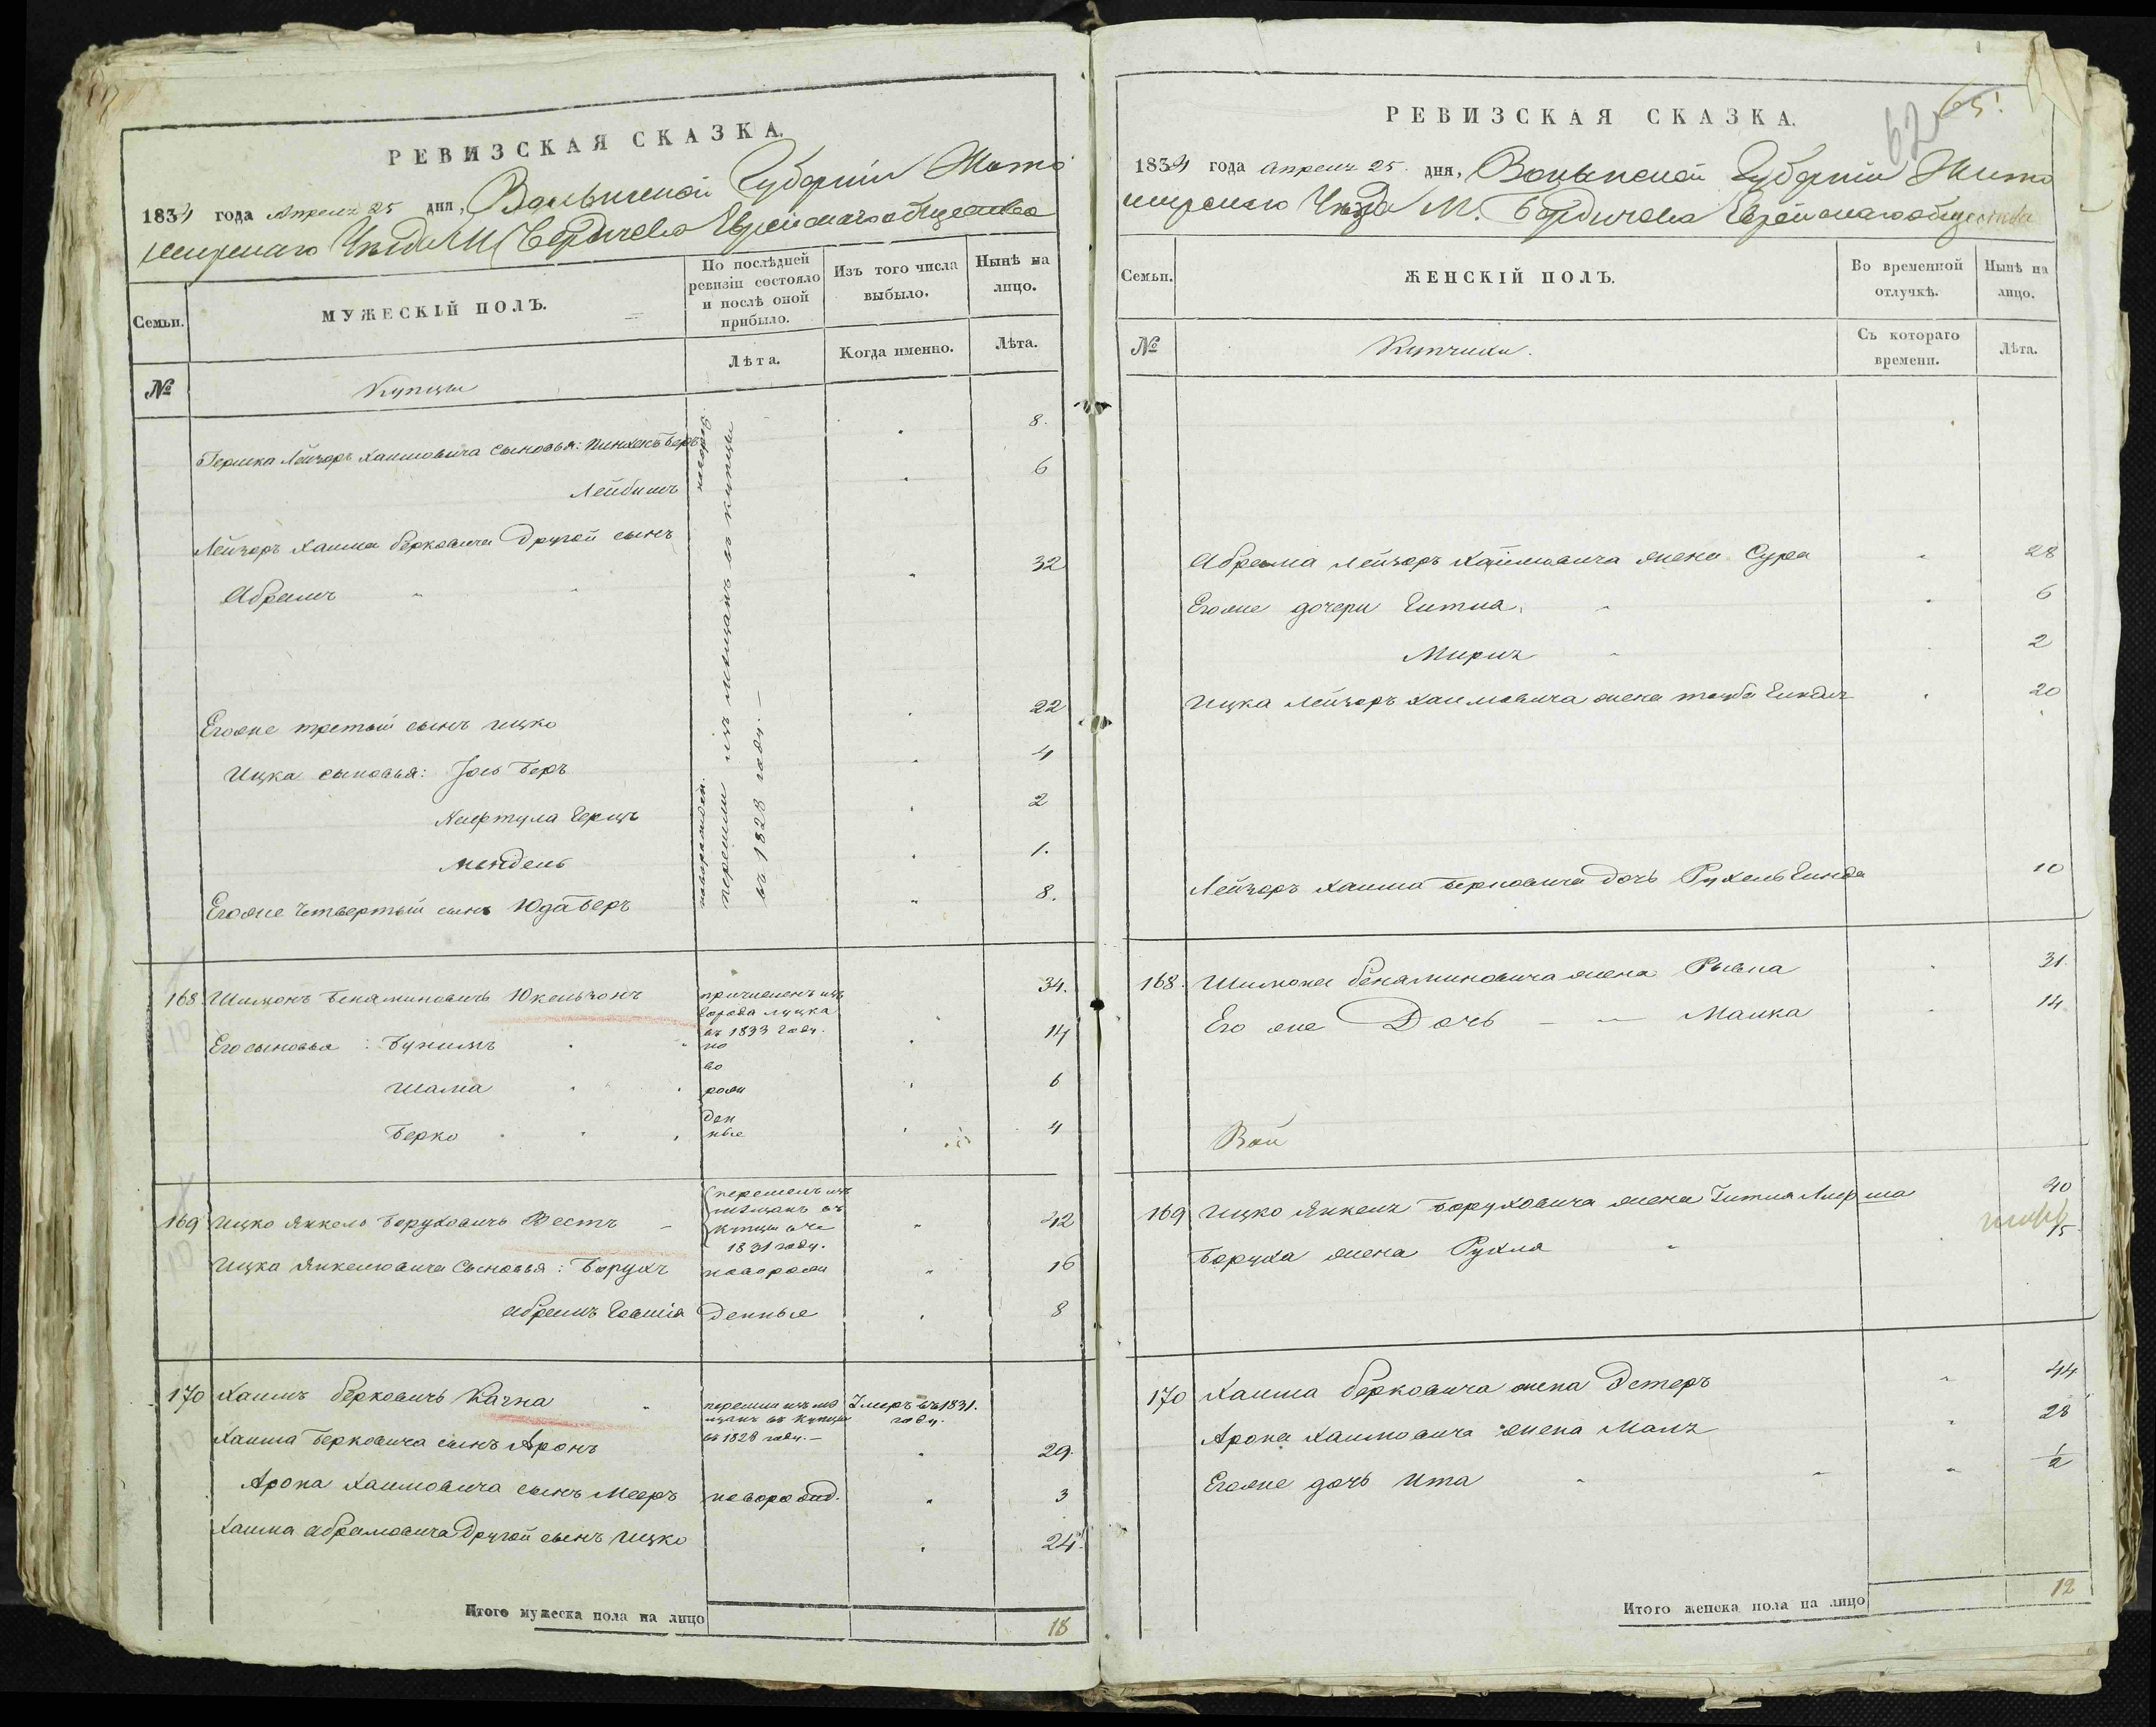 РЕВИЗСКАЯ СКАЗКА.
1834 года Апреля 25 дня, Волынской Губернии Жито
мирскаго Уезда М. Бердичева Еврейскаго общества
Семьи.
МУЖЕСКІЙ ПОЛЪ.
По послѣдней ревизіи состояло и послѣ оной прибыло.
Изъ того числа выбыло.
Нынѣ на лицо.
№
Купцы
Лѣта.
Когда именно.
Лѣта.
Гершка Лейзоръ Хаимовича сыновья: Пинхасъ Беръ 8.
Лейбишъ 6
новорож.
Лейзоръ Хаима Берковича Другой сынъ
Абрамъ 32
Егоже третый сынъ Ицко 22
Ицка сыновья: Іось Беръ 4
Нафтула Герцъ 2
Мендель 1.
новорожден.
Егоже четвертый сынъ Юда Беръ 8.
перешли изъ мещанъ въ купцы
въ 1828 году. —
168 Шимонъ Беняминовичъ Юкельзонъ причисленъ изъ города Луцка въ 1833 году. 34.
Его сыновья: Бунимъ но 14
во
Шама рож 6
ден
Берко ные 4
169 Ицко Янкель Боруховичъ Фестъ перешелъ изъ мещанъ въ купцы въ 1831 году. 42
Ицка Янкелювича Сыновья: Борухъ новорож 16
Абрамъ Гевшія денные 8
170 Хаимъ Берковичъ Качка перешли изъ ме щанъ въ купцы въ 1828 году. — Умеръ въ 1831. году.
Хаима Берковича сынъ Аронъ 29.
Арона Хаимовича сынъ Мееръ новорожд. 3
Хаима Абрамовича Другой сынъ Ицко 24.
Итого мужеска пола на лицо 18
62
65!
РЕВИЗСКАЯ СКАЗКА.
1834 года Апреля 25 дня, Волынской Губерніи Жито
мирскаго Уѣзда М. Бердичева Еврейскаго общества
Семьи.
ЖЕНСКІЙ ПОЛЪ.
Во временной отлучкѣ.
Нынѣ на лицо.
№
Купчихи.
Съ котораго времени.
Лѣта.
Абрама Лейзоръ Хаимовича жена Сура 28
Егоже дочери Гитла 6
Миря 2
Ицка Лейзоръ Хаимовича жена Тауба Гиндля 20
Лейзоръ Хаима Берковича дочь Рухель Гинда 10
168. Шимона Беняминовича жена Рывка 31
Его же Дочь — Малка 14
169 Ицко Янкеля Боруховича жена Гитля 40
Боруха жена Рухля 15
170 Хаима Берковича жена Эстеръ 44
Арона Хаимовича жена Маля 28
Егоже дочь Ита 1/2
Итого женска пола на лицо 12